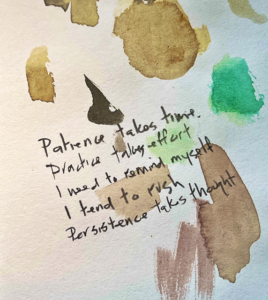 Patience takes time.
Practice takes effort
I need to remind myself
I tend to rush
Persistence takes thought